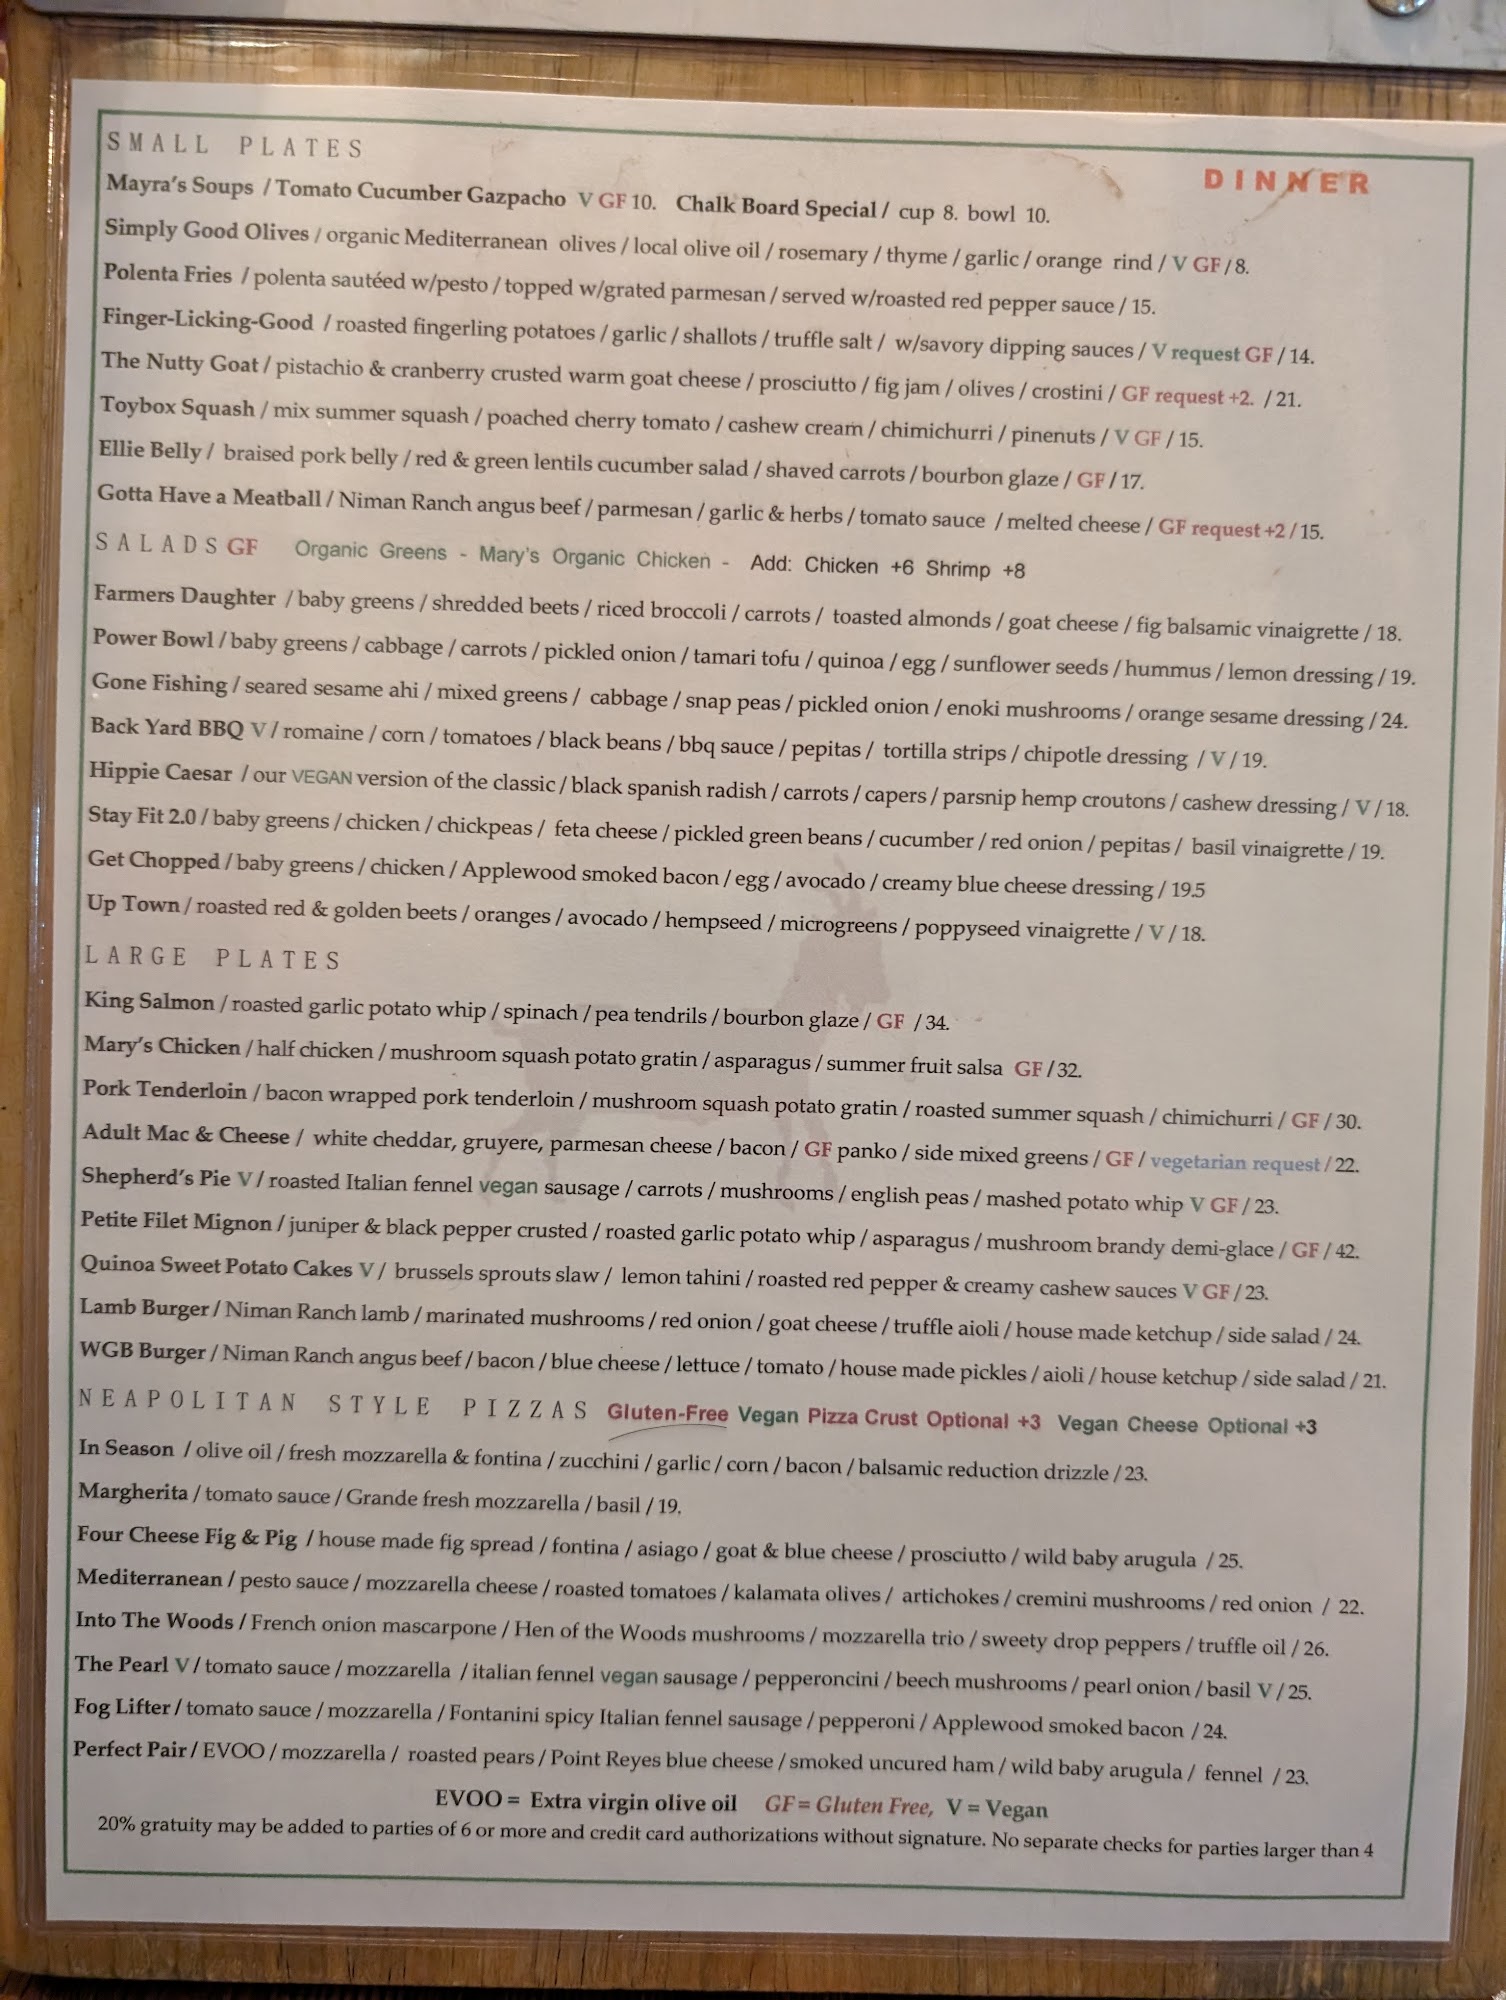 SMALL PLATES
DINNER
Mayra's Soups / Tomato Cucumber Gazpacho V GF 10. Chalk Board Special / cup 8. bowl 10.
Simply Good Olives / organic Mediterranean olives / local olive oil / rosemary / thyme / garlic / orange rind / V GF / 8.
Polenta Fries / polenta sautéed w/pesto / topped w/grated parmesan / served w/roasted red pepper sauce / 15.
Finger-Licking-Good / roasted fingerling potatoes / garlic / shallots / truffle salt / w/savory dipping sauces / V request GF / 14.
The Nutty Goat / pistachio & cranberry crusted warm goat cheese / prosciutto / fig jam / olives / crostini / GF request +2. / 21.
Toybox Squash / mix summer squash / poached cherry tomato / cashew cream / chimichurri / pinenuts / V GF / 15.
Ellie Belly / braised pork belly / red & green lentils cucumber salad / shaved carrots / bourbon glaze / GF / 17.
Gotta Have a Meatball / Niman Ranch angus beef / parmesan / garlic & herbs / tomato sauce / melted cheese / GF request +2 / 15.
SALADS GF Organic Greens - Mary's Organic Chicken - Add: Chicken +6 Shrimp +8
Farmers Daughter / baby greens / shredded beets / riced broccoli / carrots / toasted almonds / goat cheese / fig balsamic vinaigrette / 18.
Power Bowl / baby greens / cabbage / carrots / pickled onion / tamari tofu / quinoa / egg / sunflower seeds / hummus / lemon dressing / 19.
Gone Fishing / seared sesame ahi / mixed greens / cabbage / snap peas / pickled onion / enoki mushrooms / orange sesame dressing / 24.
Back Yard BBQ V / romaine / corn / tomatoes / black beans / bbq sauce / pepitas / tortilla strips / chipotle dressing / V / 19.
Hippie Caesar / our VEGAN version of the classic / black spanish radish / carrots / capers / parsnip hemp croutons / cashew dressing / V / 18.
Stay Fit 2.0 / baby greens / chicken / chickpeas / feta cheese / pickled green beans / cucumber / red onion / pepitas / basil vinaigrette / 19.
Get Chopped / baby greens / chicken / Applewood smoked bacon / egg / avocado / creamy blue cheese dressing / 19.5
Up Town / roasted red & golden beets / oranges / avocado / hempseed / microgreens / poppyseed vinaigrette / V / 18.
LARGE PLATES
King Salmon / roasted garlic potato whip / spinach / pea tendrils / bourbon glaze / GF / 34.
Mary's Chicken / half chicken / mushroom squash potato gratin / asparagus / summer fruit salsa GF / 32.
Pork Tenderloin / bacon wrapped pork tenderloin / mushroom squash potato gratin / roasted summer squash / chimichurri / GF / 30.
Adult Mac & Cheese / white cheddar, gruyere, parmesan cheese / bacon / GF panko / side mixed greens / GF / vegetarian request / 22.
Shepherd's Pie V / roasted Italian fennel vegan sausage / carrots / mushrooms / english peas / mashed potato whip V GF / 23.
Petite Filet Mignon / juniper & black pepper crusted / roasted garlic potato whip / asparagus / mushroom brandy demi-glace / GF / 42.
Quinoa Sweet Potato Cakes V / brussels sprouts slaw / lemon tahini / roasted red pepper & creamy cashew sauces V GF / 23.
Lamb Burger / Niman Ranch lamb / marinated mushrooms / red onion / goat cheese / truffle aioli / house made ketchup / side salad / 24.
WGB Burger / Niman Ranch angus beef / bacon / blue cheese / lettuce / tomato / house made pickles / aioli / house ketchup / side salad / 21.
NEAPOLITAN STYLE PIZZAS Gluten-Free Vegan Pizza Crust Optional +3 Vegan Cheese Optional +3
In Season / olive oil / fresh mozzarella & fontina / zucchini / garlic / corn / bacon / balsamic reduction drizzle / 23.
Margherita / tomato sauce / Grande fresh mozzarella / basil / 19.
Four Cheese Fig & Pig / house made fig spread / fontina / asiago / goat & blue cheese / prosciutto / wild baby arugula / 25.
Mediterranean / pesto sauce / mozzarella cheese / roasted tomatoes / kalamata olives / artichokes / cremini mushrooms / red onion / 22.
Into The Woods / French onion mascarpone / Hen of the Woods mushrooms / mozzarella trio / sweety drop peppers / truffle oil / 26.
The Pearl V / tomato sauce / mozzarella / italian fennel vegan sausage / pepperoncini / beech mushrooms / pearl onion / basil V / 25.
Fog Lifter / tomato sauce / mozzarella / Fontanini spicy Italian fennel sausage / pepperoni / Applewood smoked bacon / 24.
Perfect Pair / EVOO / mozzarella / roasted pears / Point Reyes blue cheese / smoked uncured ham / wild baby arugula / fennel / 23.
EVOO = Extra virgin olive oil GF = Gluten Free, V = Vegan
20% gratuity may be added to parties of 6 or more and credit card authorizations without signature. No separate checks for parties larger than 4